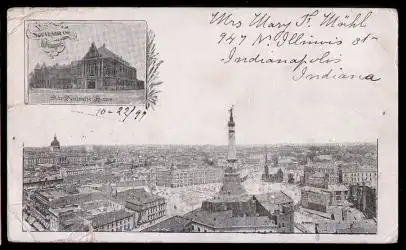 SOUVENIR OF
Das Deutsche Haus
10-22/99
Mrs Mary F. Möhl
947 N. Illinois st
Indianapolis
Indiana